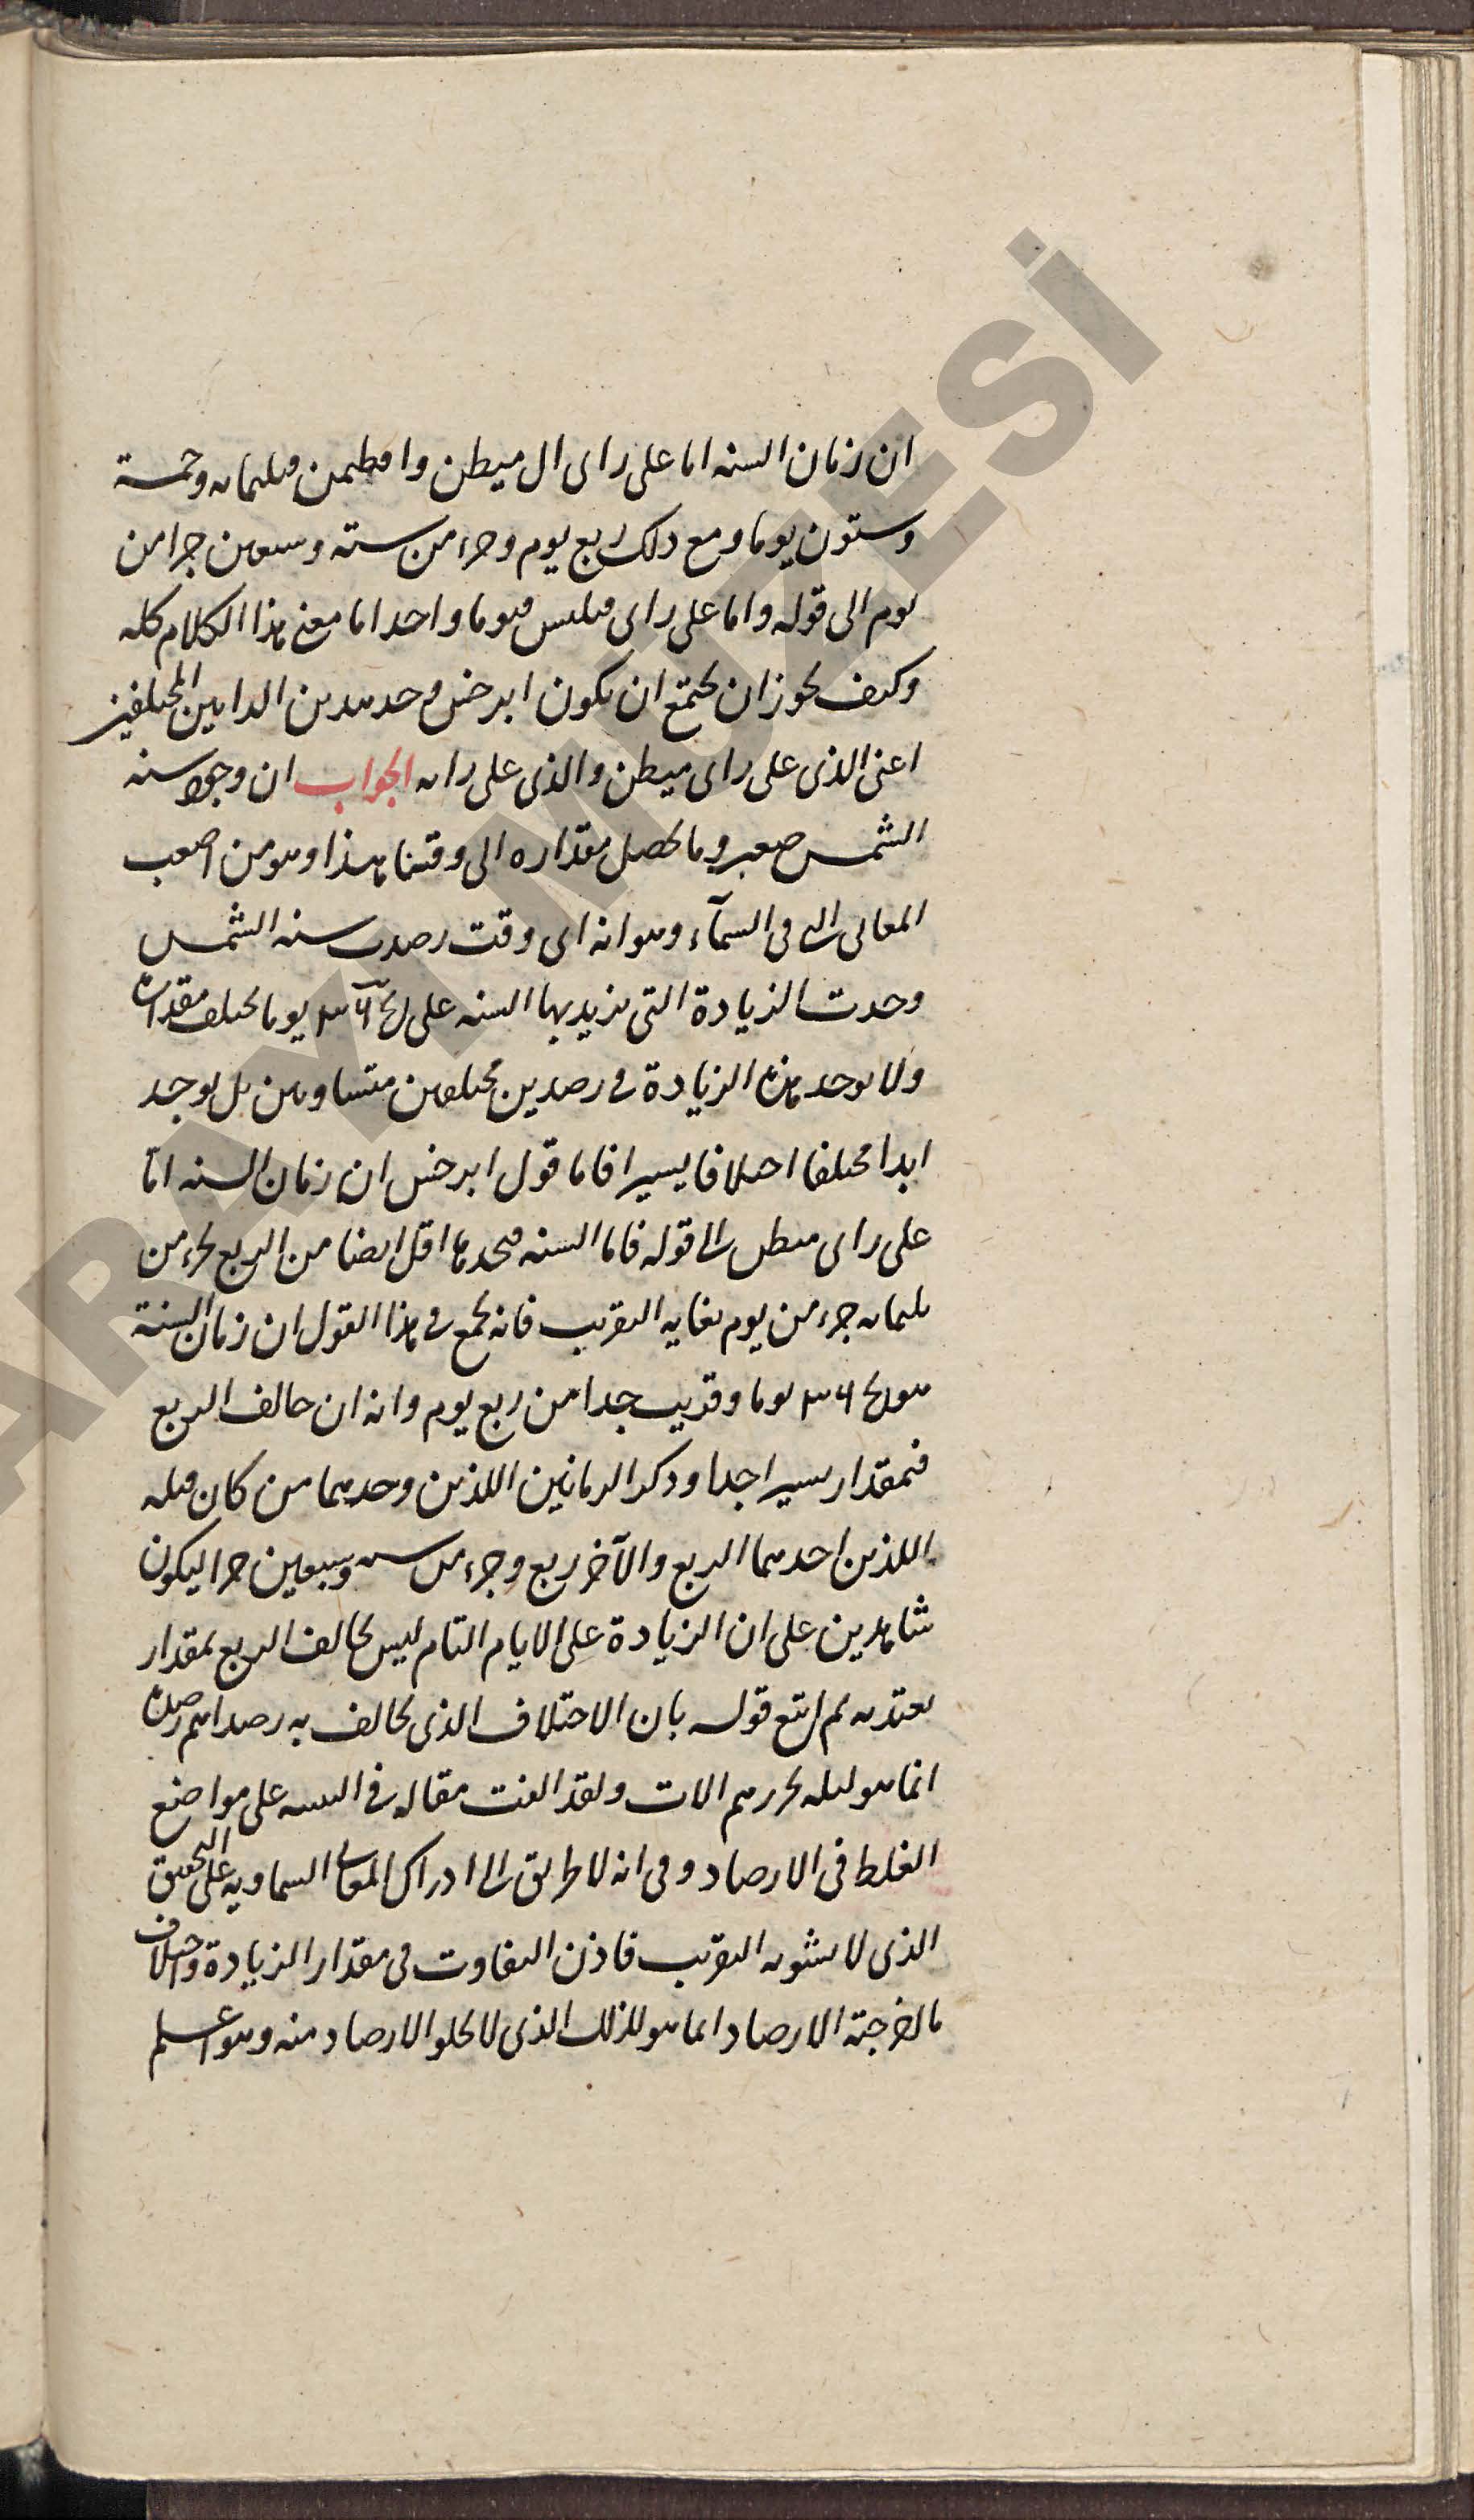 ان زمان السنه اما على راى ال ميطن وا فطيمن فثلثمايه وخمسة
وستون يوما ومع ذلك ربع يوم وجزء من ستة وسبعين جزا من
يوم الى قوله واما على راى فيوما واحدا ما معنى هذا الكلام كله
وكيف يجوز ان يجتمع ان يكون ابرخس وجد هذين الرايين المختلفين
اعنى الذى على راى ميطن والذى على رايه الجواب ان وجود سنه
الشمس صعب وما يحصل مقداره الى وقتنا هذا وهو من اصعب
المعانى التى فى السمآء وهو انه اى وقت رصدت سنه الشمس
وجدت الزيادة التى تزيد بها السنه على يوما يختلف مقدارها
ولا يوجد هذه الزيادة فى رصدين مختلفين متساويين بل يوجد
ابدا مختلفا اختلافا يسيرا فاما قول ابرخس ان زمان السنه امّا
على راى ميطن الى قوله فاما السنه فيجدها اقل ايضا من الربع بجزء من
ثلثمايه جزء من يوم بغايه التقريب فانه يجمع فى هذا القول ان زمان السنة
هو يوما وقريب جدا من ربع يوم وانه ان خالف الربع
فبمقدار يسير جدا وذكر الزمانين اللذين وجدهما من كان قبله
اللذين احدهما الربع والآخر ربع وجزء من سته وسبعين جزا ليكون
شاهدين على ان الزيادة على الايام التام ليس يخالف الربع بمقدار
يعتد به ثم اتبع قوله بان الاختلاف الذى يخالف به رصدهم رصده
انما هو لقله تحريرهم الالات ولقد الفت مقاله فى التنبيه على مواضع
الغلط فى الارصاد وفى انه لا طريق الى ادراك المعانى السماويه على التحقيق
الذى لا يشوبه التقريب فاذن التفاوت فى مقدار الزيادة واختلاف
ما اخرجته الارصاد انما هو للزلل الذى لا يخلو الارصاد منه وهو اعلم
ARAMI MÜZESİ